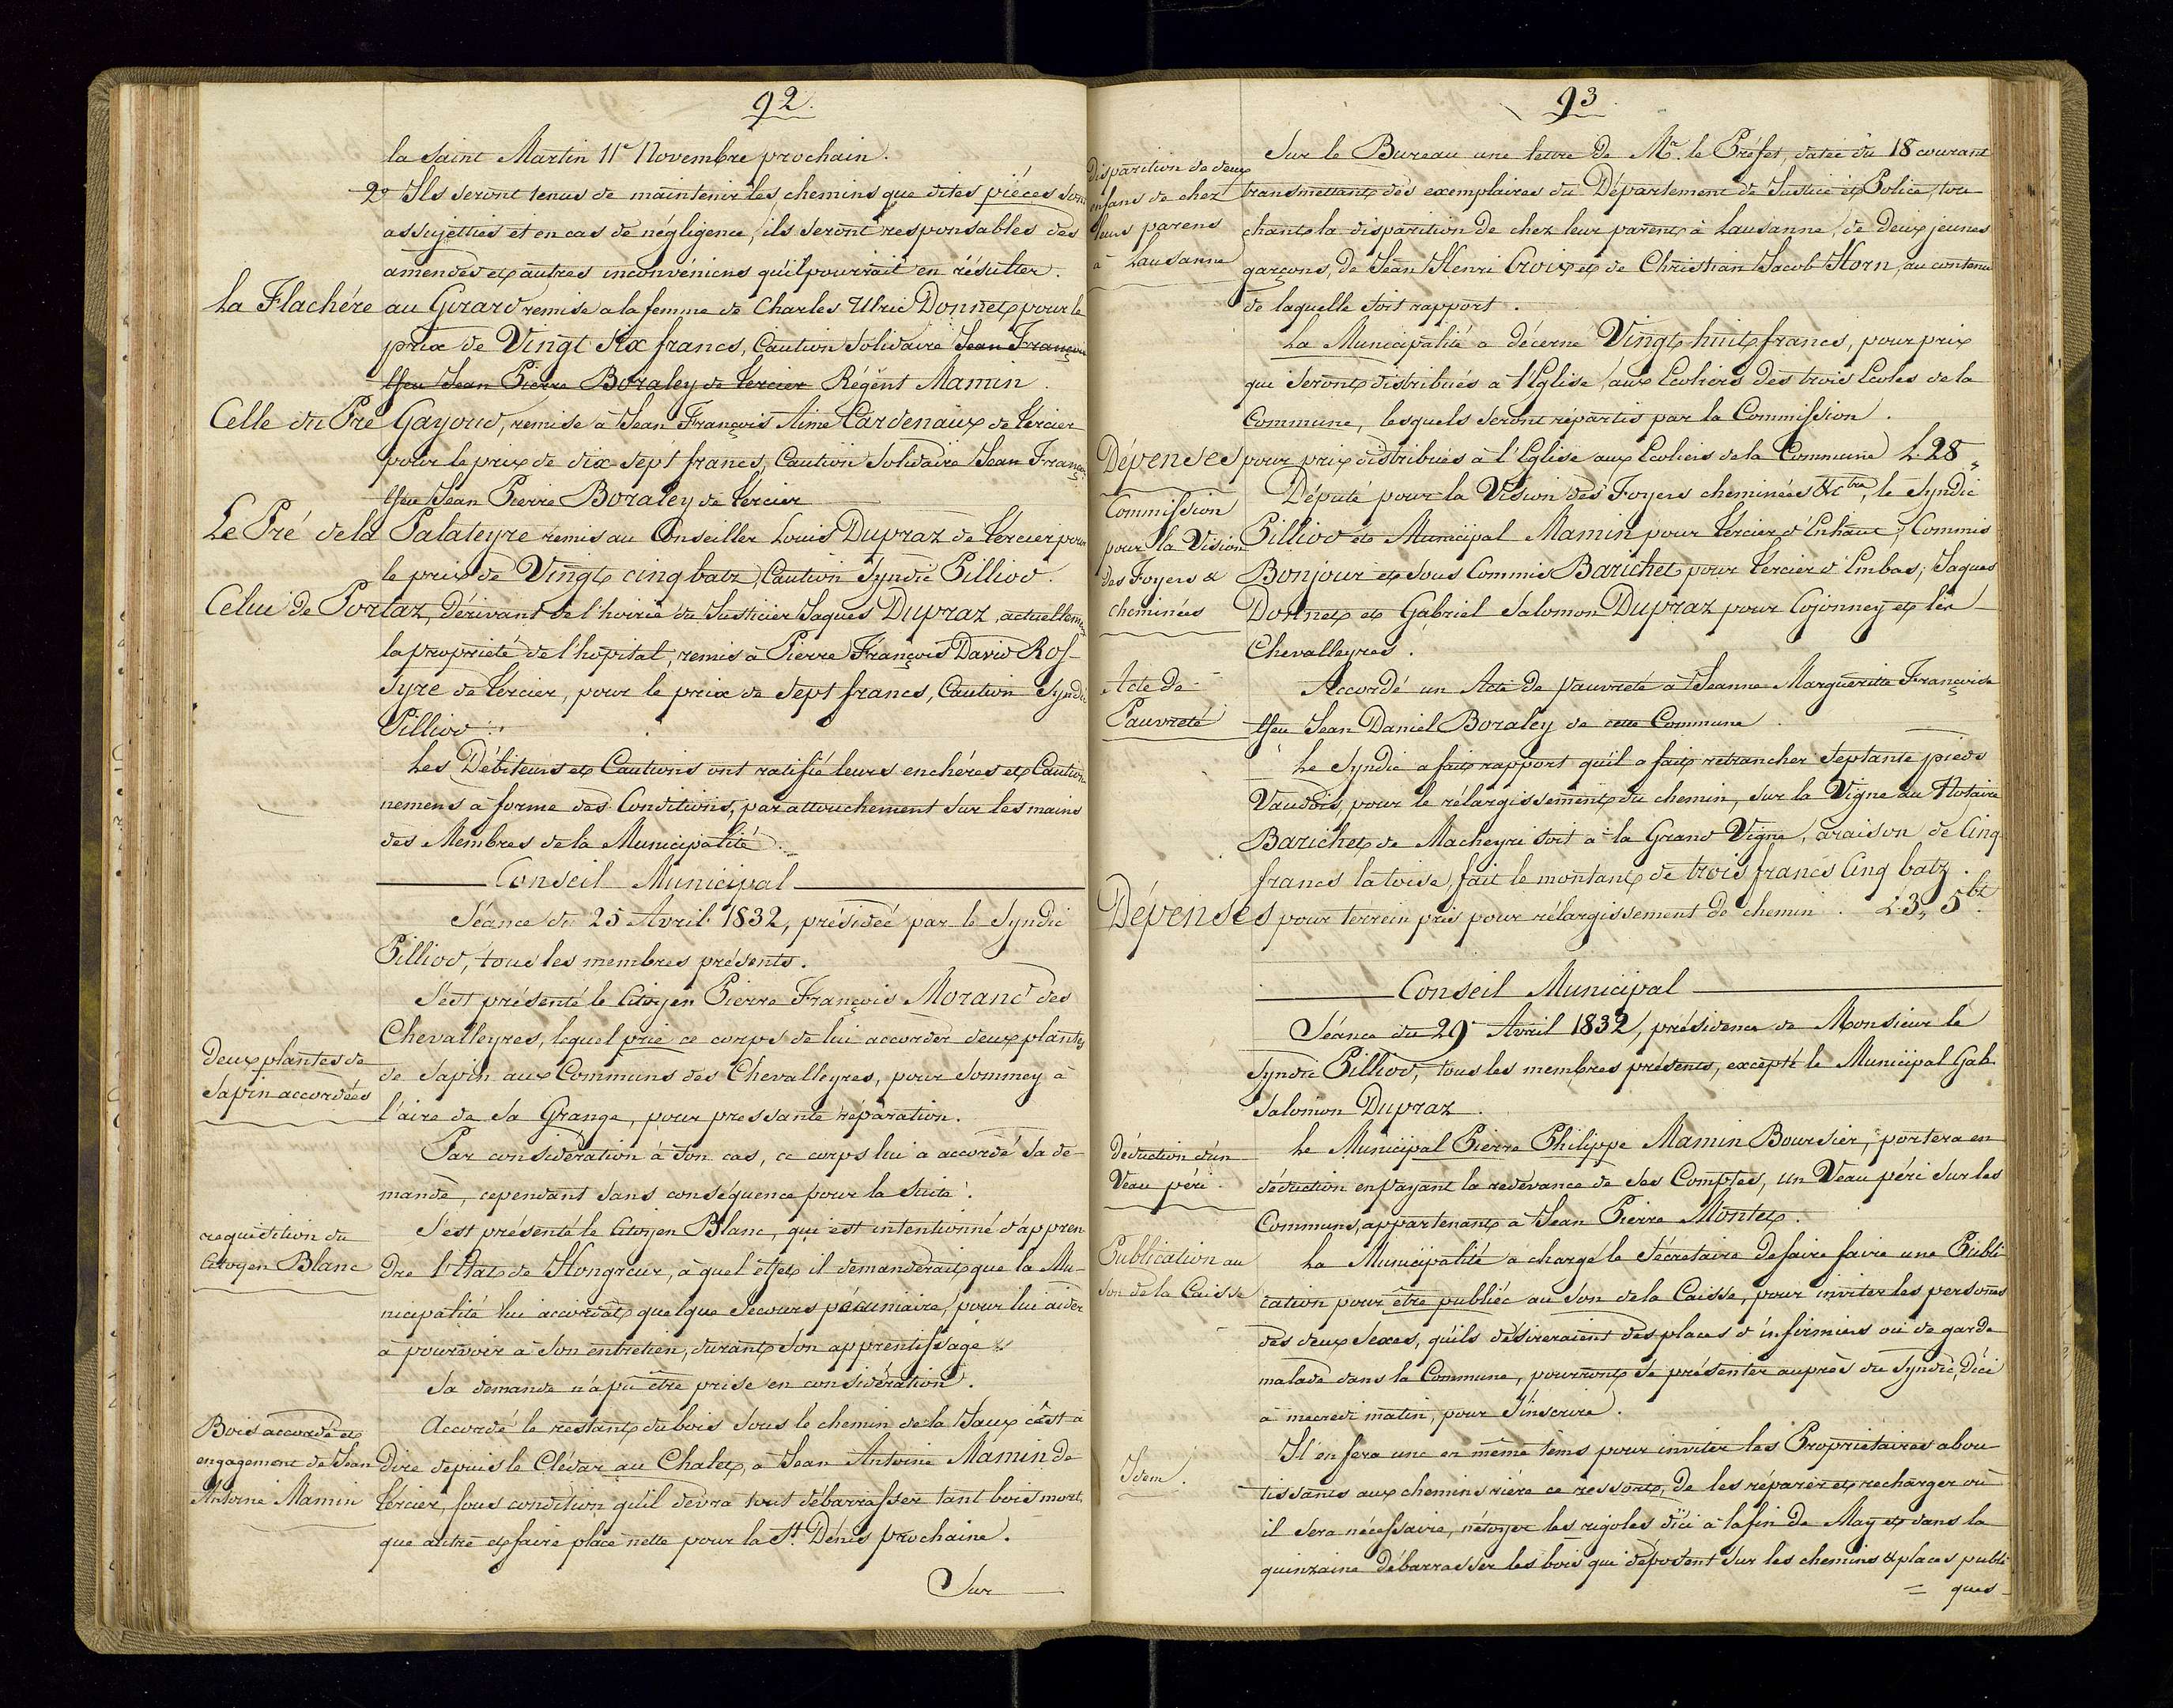 92.
la Saint Martin 11e Novembre prochain.
2o Ils seront tenus de maintenir les chemins que dites piéces sont
assujetties et en cas de négligence, ils seront responsables des
amendes et autres inconvéniens qu'il pourrait en résulter.
La Flachére au Girard remise a la femme de Charles Ulric Donnet pour le
prix de Vingt Six francs, Caution Solidaire Jean François
ffeu Jean Pierre Boraley de Tercier Régent Mamin.
Celle du Pré Gayoud, remise à Jean François Aimé Cardenaux de Tercier
pour le prix de dix-sept francs, Caution Solidaire Jean François
ffeu Jean Pierre Boraley de Tercier
Le Pré de la Palateyre remis au Conseiller Louis Dupraz de Tercier pour
le prix de Vingt cinq batz, Caution Syndic Pilliod.
Celui de Portaz, dérivant de l'hoirie du Justicier Jaques Dupraz, actuellement
la propriété de l'hopital, remis à Pierre François David Ros-
syre de Tercier, pour le prix de Sept francs, Caution Syndic
Pilliod.
Les Débiteurs et Cautions ont ratifié leurs enchéres et Caution
nemens à forme des Conditions, par attouchement sur les mains
des Membres de la Municipalité.
Conseil Municipal
Séance du 25 Avril 1832, présidée par le Syndic
Pilliod, tous les membres présents.
S'est présenté le Citoyen Pierre François Morand des
Chevalleyres, lequel prie ce corps de lui accorder deux plantes
deux plantes de
Sapin accordées
de Sapin aux Communs des Chevalleyres, pour Sommey à
l'aire de sa Grange, pour pressante réparation.
Par considération à son cas, ce corps lui a accordé sa de-
mande, cependant sans conséquence pour la suite.
requisition du
Citoyen Blanc
S'est présenté le Citoyen Blanc, qui est intentionné d'appren
dre l'Etat de Hongreur, à quel effet il demanderait que la Mu-
nicipalité lui accordat quelque secours pécuniaire, pour lui aider
à pourvoir à son entretien, durant son apprentissage
Sa demande n'a pu être prise en considération.
Bois accordé et
engagement de Jean
Antoine Mamin
Accordé le restant du bois sous le chemin de la Jaux c'est-à
dire depuis le Clédar au Chalet, à Jean Antoine Mamin de
Tercier, sous condition qu'il devra tout débarrasser tant bois mort,
que autre et faire place nette pour la St. Dénis prochaine.
Sur
93
disparition de deux
enfans de chez
leurs parens
à Lausanne
Sur le Bureau une lettre de Mr. le Préfet, datée du 18 courant
transmettant des exemplaires du Département de Justice et Police, tou
chant la disparition de chez leur parent à Lausanne, de deux jeunes
garçons, de Jean Henri Croix et de Christian Jacob Horn, au contenu
de laquelle soit rapport.
La Municipalité a décerné Vingt-huit francs, pour prix
qui seront distribués a l'Eglise, aux Ecoliers des trois Ecoles de la
Commune, lesquels seront répartis par la Commission.
Dépenses pour prix distribués à l'Eglise aux Ecoliers de la Commune L. 28,,
Commission
pour la Vision
des Foyers &
cheminées
Député pour la Vision des Foyers cheminées &ctra, le Syndic
Pilliod et Municipal Mamin pour Tercier d'Enhaut; Commis
Bonjour et Sous Commis Barichet pour Tercier d'Embas; Jaques
Donnet et Gabriel Salomon Dupraz pour Cojonney et les
Chevalleyres.
Acte de
Pauvreté
Accordé un Acte de Pauvreté à Jeanne Marguerite Françoise
ffeu Jean Daniel Boraley de cette Commune.
Le Syndic a fait rapport qu'il a fait retrancher Septante pieds
Vaudois, pour le rélargissement du chemin, sur la Vigne du Notaire
Barichet de Macheyri soit à la Grand Vigne, à raison de Cinq
francs la toise, fait le montant de trois francs Cinq batz.
Dépenses pour terrein pris pour rélargissement de chemin. L. 3,, 5 bt.
Conseil Municipal
Séance du 29 Avril 1832, présidence de Monsieur le
Syndic Pilliod, tous les membres présents, excepté le Municipal Gab.
Salomon Dupraz.
déduction d'un
Veau péri.
Le Municipal Pierre Philippe Mamin Boursier, portera en
déduction en payant la redevance de ses Comptes, un Veau péri sur les
Communs, appartenant à Jean Pierre Montet.
Publication au
son de la Caisse
La Municipalité a chargé le Sécretaire de faire faire une Publi
cation pour être publiée au son de la Caisse, pour inviter les personnes
des deux Sexes, qu'ils désireraient des places d'infirmiers ou de garde
malade dans la Commune, pourront se présenter auprès du Syndic, d'ici
à mecredi matin, pour s'inscrire.
Idem.
Il en fera une en même tems pour inviter les Propriétaires abou
tissants aux chemins riére ce ressort, de les réparer et recharger où
il sera nécessaire, nétoyer les rigoles d'ici à la fin de May et dans la
quinzaine débarrasser les bois qui déposent sur les chemins & places publi
= ques